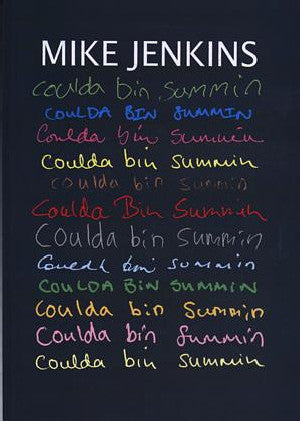 MIKE JENKINS
coulda bin summin
COULDA BIN SUMMIN
Coulda bin Summin
Coulda bin Summin
coulda bin summin
Coulda Bin Summin
Coulda bin Summin
Coulda bin summin
COULDA BIN SUMMIN
Coulda bin Summin
Coulda bin Summin
Coulda bin Summin